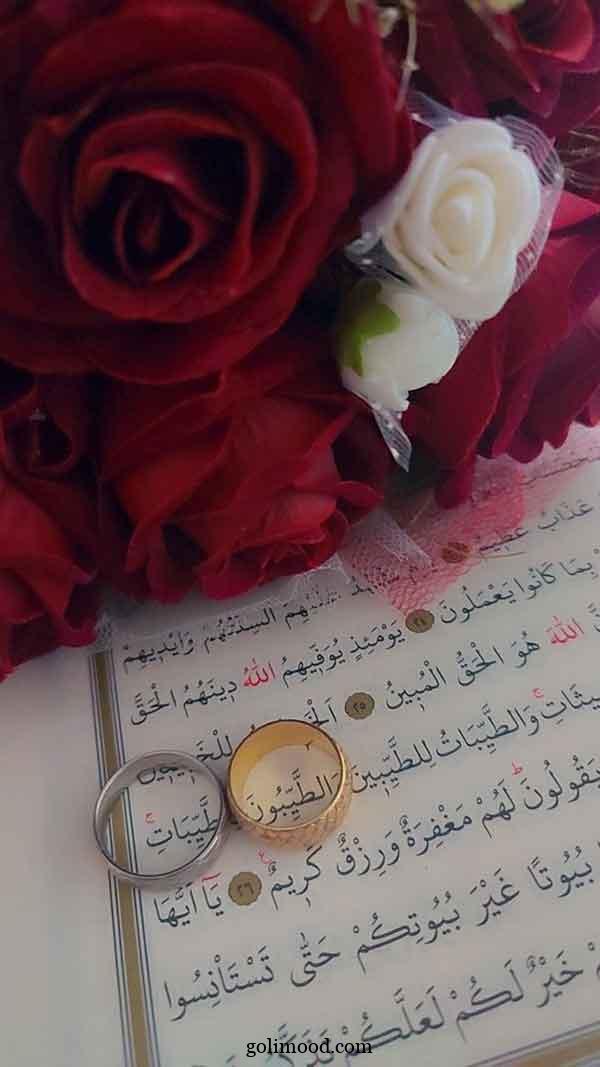 عَذَابٌ عَظِيمٌ
اَلْسِنَتُهُمْ وَاَيْدِيهِمْ
بِمَا كَانُوا يَعْمَلُونَ ٢٤ يَوْمَئِذٍ يُوَفِّيهِمُ اللّٰهُ دِينَهُمُ الْحَقَّ
اللّٰهَ هُوَ الْحَقُّ الْمُبِينُ ٢٥ لِلْخَبِيثِينَ
وَالطَّيِّبَاتُ لِلطَّيِّبِينَ وَالطَّيِّبُونَ
يَقُولُونَ لَهُمْ مَغْفِرَةٌ وَرِزْقٌ كَرِيمٌ ٢٦ يَٓا اَيُّهَا
بُيُوتًا غَيْرَ بُيُوتِكُمْ حَتّٰى تَسْتَأْنِسُوا
خَيْرٌ لَكُمْ لَعَلَّكُمْ
golimood.com